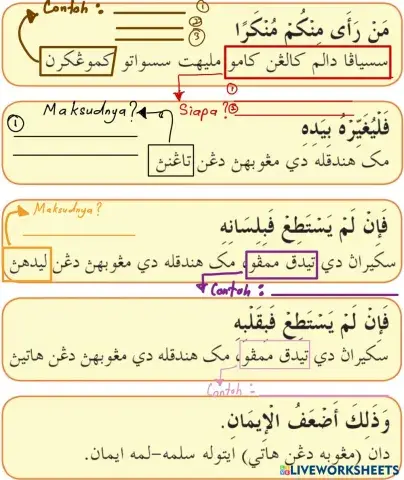 Contoh : ①
②
③
مَنْ رَأَى مِنْكُمْ مُنْكَرًا
سسياڤا دالم كالڠن كامو مليهت سسواتو كموڠكرن
①
Maksudnya? Siapa? ②
①
فَلْيُغَيِّرْهُ بِيَدِهِ
مک هندقله دي مڠوبهڽ دڠن تاڠنڽ
Maksudnya?
فَإِنْ لَمْ يَسْتَطِعْ فَبِلِسَانِهِ
سکيراڽ دي تيدق ممڤو، مک هندقله دي مڠوبهڽ دڠن ليدهڽ
Contoh :
فَإِنْ لَمْ يَسْتَطِعْ فَبِقَلْبِهِ
سکيراڽ دي تيدق ممڤو، مک هندقله دي مڠوبهڽ دڠن هاتيڽ
Contoh :
وَذَلِكَ أَضْعَفُ الْإِيمَانِ.
دان (مڠوبه دڠن هاتي) ايتوله سلمه-لمه ايمان.
LIVEWORKSHEETS